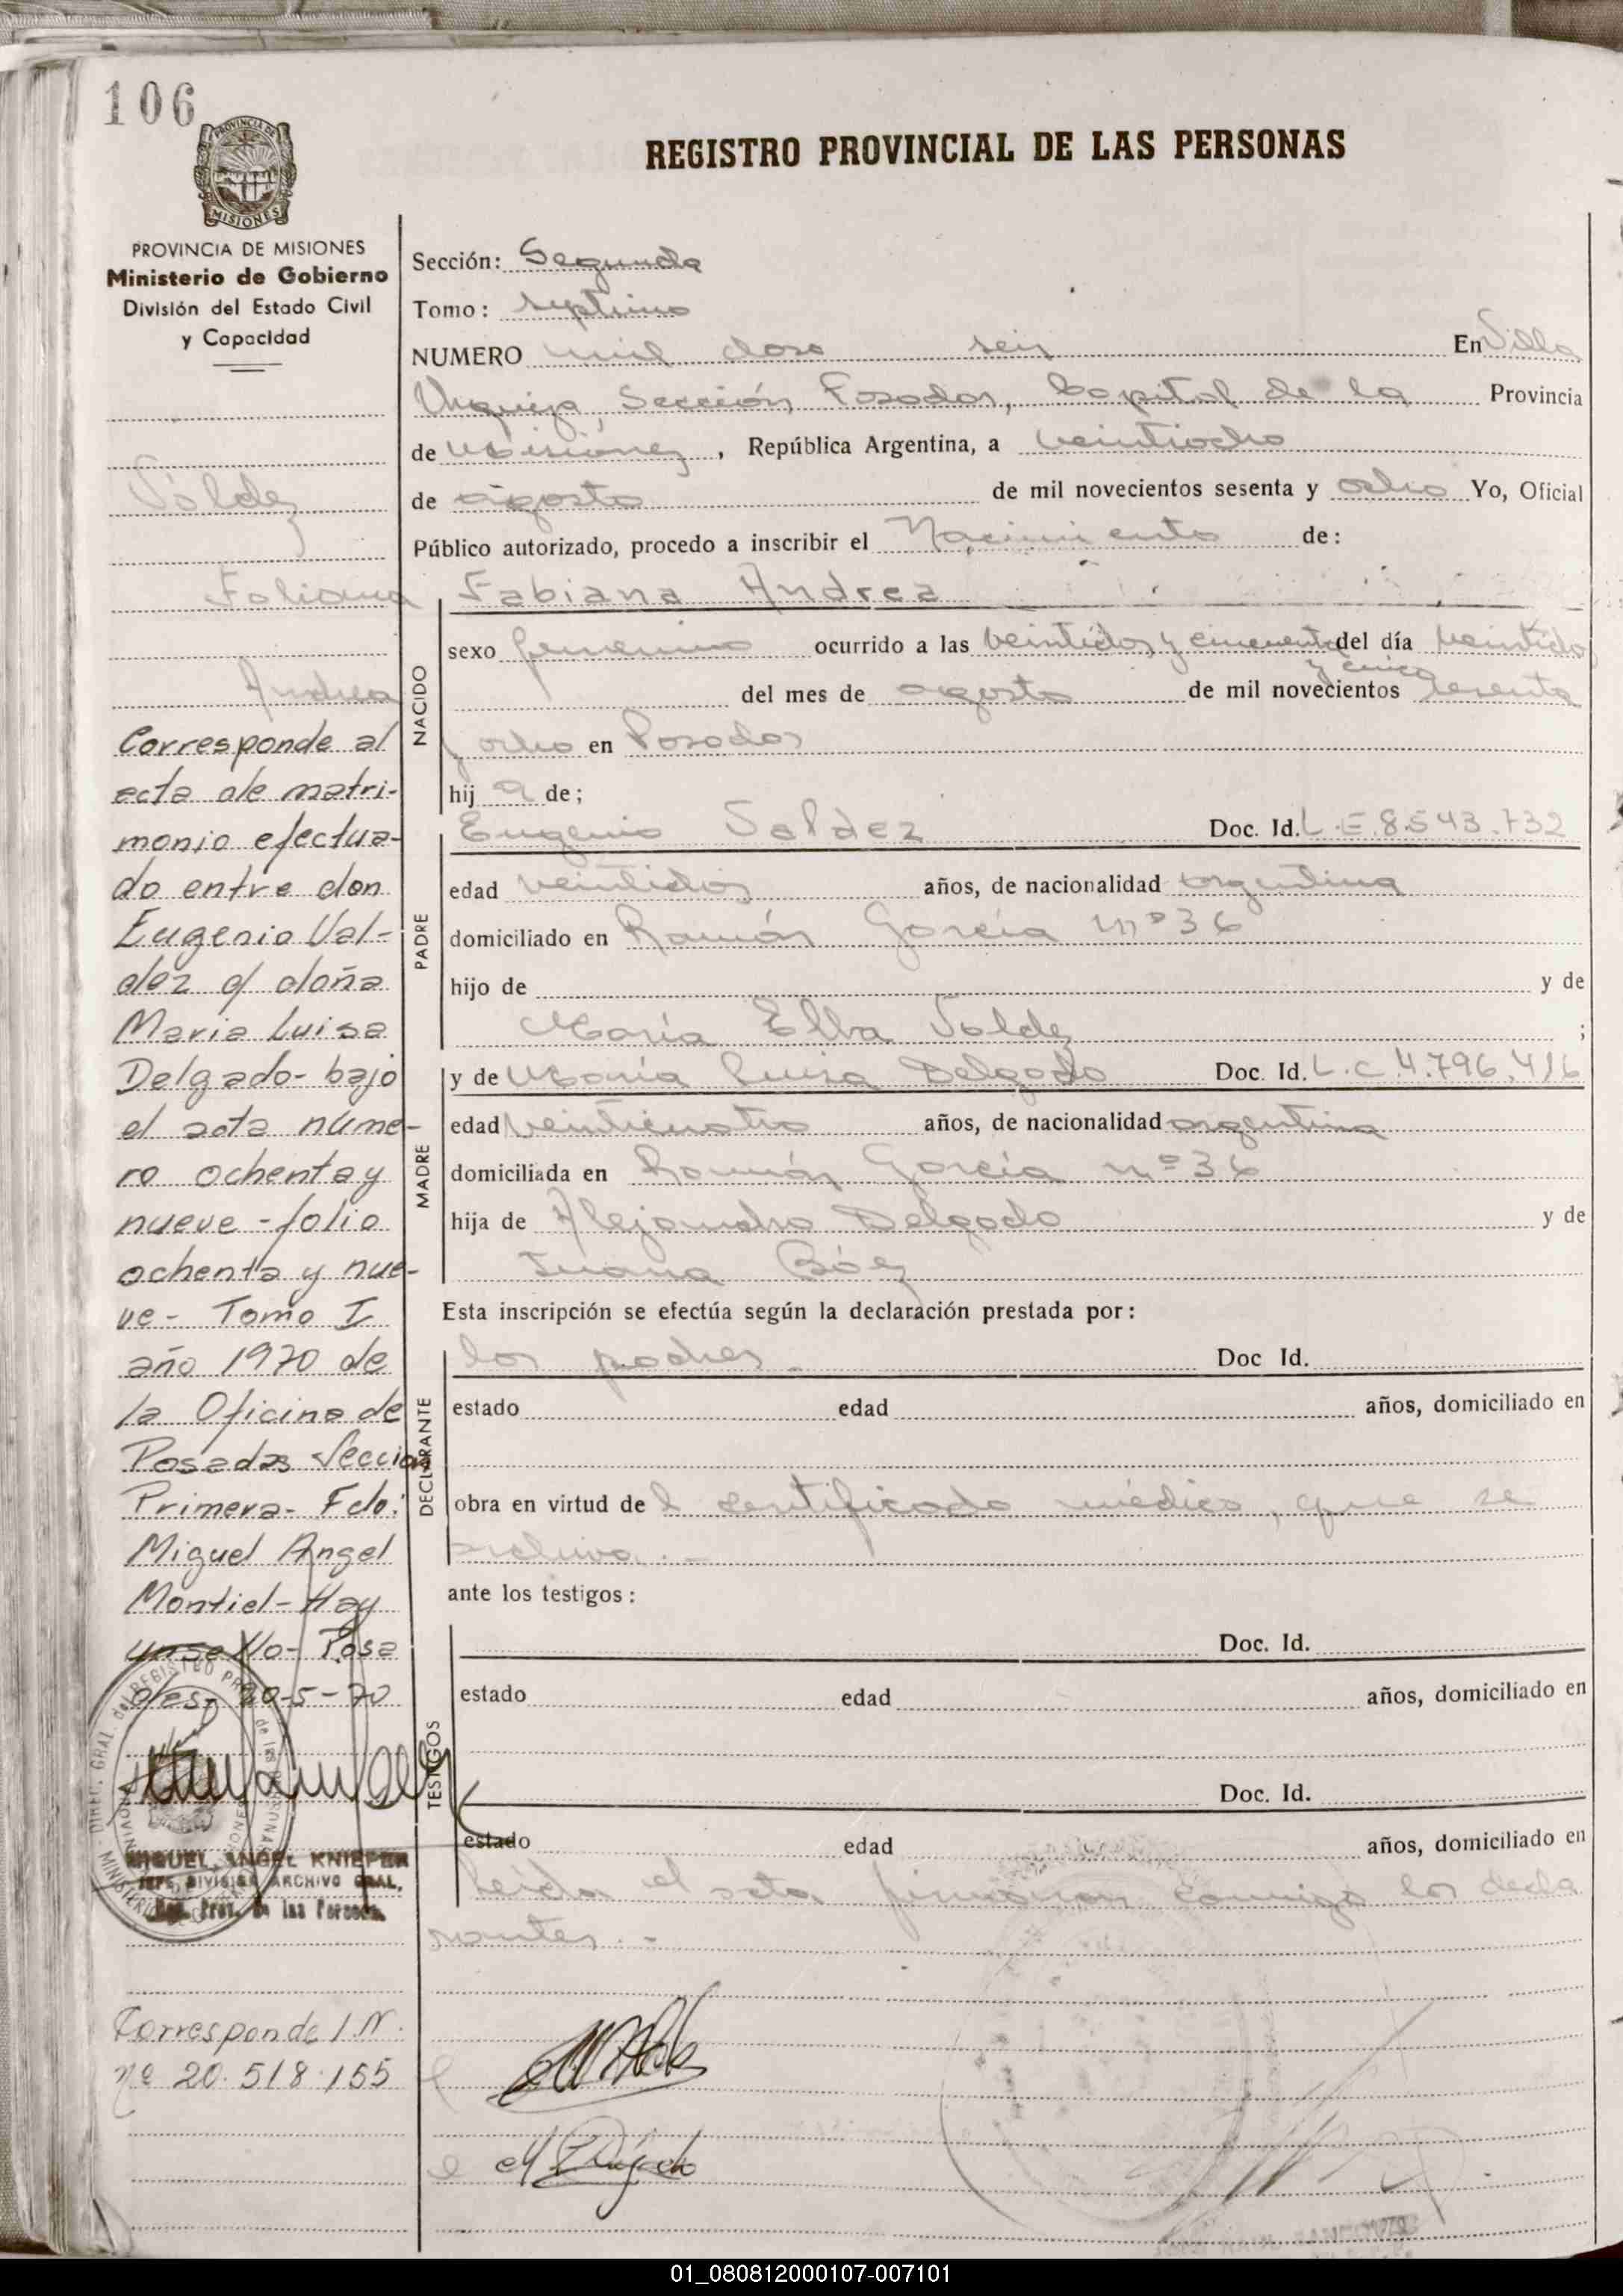 106
PROVINCIA DE
MISIONES
REGISTRO PROVINCIAL DE LAS PERSONAS
PROVINCIA DE MISIONES
Ministerio de Gobierno
División del Estado Civil
y Capacidad
Valdez
Fabiana
Andrea
Corresponde al
acta de matri-
monio efectua-
do entre don
Eugenio Val-
dez y doña
Maria Luisa
Delgado- bajo
el acta nume-
ro ochenta y
nueve - folio
ochenta y nue-
ve - Tomo I
año 1970 de
la Oficina de
Posadas Seccion
Primera - Fdo:
Miguel Angel
Montiel - Hay
un sello - Posa
das, 20-5-70
MIGUEL ANGEL KNIEPER
JEFE DIVISION ARCHIVO GRAL.
Reg. Prov. de las Personas
Corresponde I.N.
nº 20.518.155
Sección: Segunda
Tomo: septimo
NUMERO mil dosc seis En Villa
Urquiza, Sección Posadas, Capital de la Provincia
de Misiones, República Argentina, a veintiocho
de agosto de mil novecientos sesenta y ocho Yo, Oficial
Público autorizado, procedo a inscribir el Nacimiento de:
Fabiana Andrea
NACIDO
sexo femenino ocurrido a las veintidos y cincuenta del día veintidos
y cinco
del mes de agosto de mil novecientos sesenta
y ocho en Posadas
hij a de;
PADRE
Eugenio Valdez Doc. Id. L.E. 8.543.732
edad veintidos años, de nacionalidad argentina
domiciliado en Ramón García nº 36
hijo de y de
María Elba Valdez ;
MADRE
y de María Luisa Delgado Doc. Id. L.C. 4.796.416
edad veinticuatro años, de nacionalidad argentina
domiciliada en Ramón García nº 36
hija de Alejandro Delgado y de
Juana Báez
Esta inscripción se efectúa según la declaración prestada por:
DECLARANTE
los padres.- Doc Id.
estado edad años, domiciliado en
obra en virtud de l certificado médico, que se
archiva.-
ante los testigos:
TESTIGOS
Doc. Id.
estado edad años, domiciliado en
Doc. Id.
estado edad años, domiciliado en
Leída el acta firmaron conmigo los decla
rantes.-
01_080812000107-007101